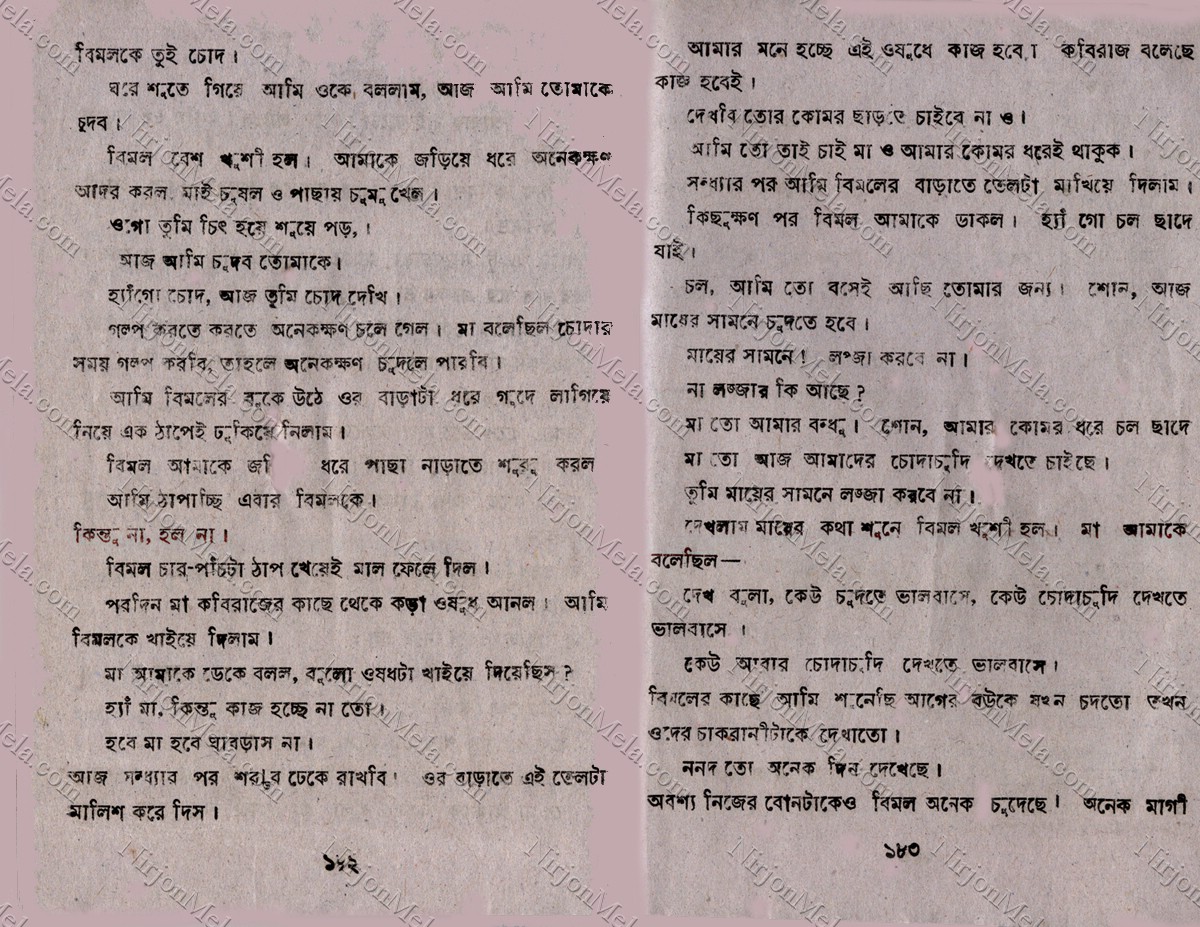 বিমলকে তুই চোদ।
ঘরে শুতে গিয়ে আমি ওকে বললাম, আজ আমি তোমাকে
চুদব।
বিমল বেশ খুশী হল। আমাকে জড়িয়ে ধরে অনেকক্ষণ
আদর করল মাই চুষল ও পাছায় চুমু খেল।
ওগো তুমি চিৎ হয়ে শুয়ে পড়,।
আজ আমি চুদব তোমাকে।
হ্যাঁগো চোদ, আজ তুমি চোদ দেখি।
গল্প করতে করতে অনেকক্ষণ চলে গেল। মা বলেছিল চোদার
সময় গল্প করবি, তাহলে অনেকক্ষণ চুদলে পারবি।
আমি বিমলের বুকে উঠে ওর বাড়াটা ধরে গুদে লাগিয়ে
নিয়ে এক ঠাপেই ঢুকিয়ে নিলাম।
বিমল আমাকে জ‌ড়ি ধরে পাছা নাড়াতে শুরু করল
আমি ঠাপাচ্ছি এবার বিমলকে।
কিন্তু না, হল না।
বিমল চার-পাঁচটা ঠাপ খেয়েই মাল ফেলে দিল।
পরদিন মা কবিরাজের কাছে থেকে কড়া ওষুধ আনল। আমি
বিমলকে খাইয়ে দিলাম।
মা আমাকে ডেকে বলল, বুলো ওষধটা খাইয়ে দিয়েছিস?
হ্যাঁ মা, কিন্তু কাজ হচ্ছে না তো।
হবে মা হবে ঘাবড়াস না।
আজ সন্ধ্যার পর শরীর ঢেকে রাখবি। ওর বাড়াতে এই তেলটা
মালিশ করে দিস।
১৮২
আমার মনে হচ্ছে এই ওষুধে কাজ হবে। কবিরাজ বলেছে
কাজ হবেই।
দেখবি তোর কোমর ছাড়তে চাইবে না ও।
আমি তো তাই চাই মা ও আমার কোমর ধরেই থাকুক।
সন্ধ্যার পর আমি বিমলের বাড়াতে তেলটা মাখিয়ে দিলাম।
কিছুক্ষণ পর বিমল আমাকে ডাকল। হ্যাঁ গো চল ছাদে
যাই।
চল, আমি তো বসেই আছি তোমার জন্য। শোন, আজ
মায়ের সামনে চুদতে হবে।
মায়ের সামনে! লজ্জা করবে না।
না লজ্জার কি আছে?
মা তো আমার বন্ধু। শোন, আমার কোমর ধরে চল ছাদে
মা তো আজ আমাদের চোদাচুদি দেখতে চাইছে।
তুমি মায়ের সামনে লজ্জা করবে না।
দেখলাম মায়ের কথা শুনে বিমল খুশী হল। মা আমাকে
বলেছিল—
দেখ বুলা, কেউ চুদতে ভালবাসে, কেউ চোদাচুদি দেখতে
ভালবাসে।
কেউ আবার চোদাচুদি দেখতে ভালবাসে।
বিমলের কাছে আমি শুনেছি আগের বউকে যখন চদতো তখন
ওদের চাকরানীটাকে দেখাতো।
ননদ তো অনেক দিন দেখেছে।
অবশ্য নিজের বোনটাকেও বিমল অনেক চুদেছে। অনেক মাগী
১৮৩